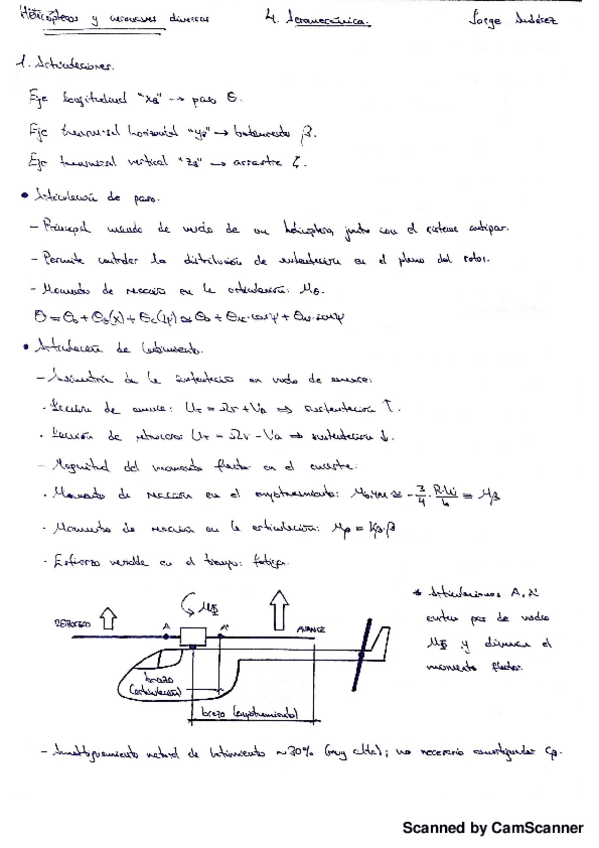 Helicópteros y aeronaves diversas 4. Aeromecánica. Jorge
1. Articulaciones.
Eje longitudinal "x_B" → paso θ.
Eje transversal horizontal "y_B" → batimiento β.
Eje transversal vertical "z_B" → arrastre ζ.
• Articulación de paso.
- Principal mando de vuelo de un helicóptero, junto con el sistema antipar.
- Permite controlar la distribución de sustentación en el plano del rotor.
- Momento de reacción en la articulación: M_θ.
θ = θ_0 + θ_s(x) + θ_c(ψ) ≃ θ_0 + θ_1c · cosψ + θ_1s · senψ
• Articulación de batimiento.
- Asimetría de la sustentación en vuelo de avance:
· Sección de avance: U_T = Ωr + V_a ⇒ sustentación ↑.
· Sección de retroceso: U_T = Ωr - V_a ⇒ sustentación ↓.
- Magnitud del momento flector en el encastre.
· Momento de reacción en el empotramiento: ≃ - 3/4 · = M_β
· Momento de reacción en la articulación: M_β = K_β · β
· Esfuerzo variable en el tiempo: fatiga.
RETROCESO A A' AVANCE
brazo
(articulación)
brazo (empotramiento)
* Articulaciones A, A'
evitan par de vuelco
y disminuyen el
momento flector.
- Amortiguamiento natural de batimiento ~30% (muy alta); no necesario amortiguador
Scanned by CamScanner